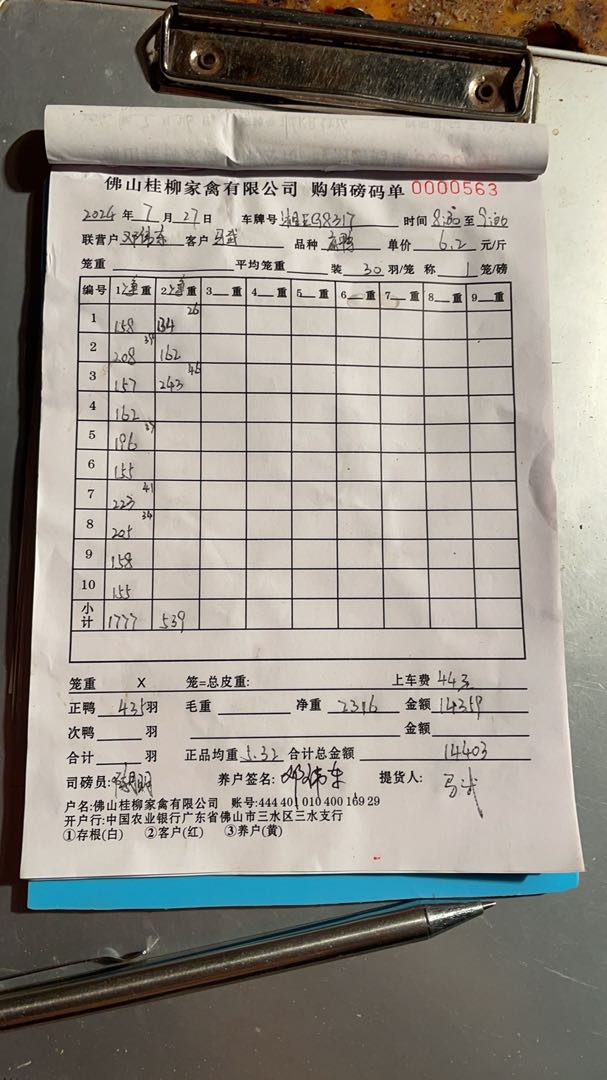 佛山桂柳家禽有限公司 购销磅码单 0000563
2024年 7 月 27 日 车牌号 湘EG8317 时间 8:30 至 9:00
联营户 邓伟东 客户 马武 品种 麻鸭 单价 6.2 元/斤
笼重 平均笼重 装 30 羽/笼 称 1 笼/磅
编号 1 重 2 重 3 重 4 重 5 重 6 重 7 重 8 重 9 重
1 158 134 26
2 208 39 162
3 157 243 46
4 162
5 196
6 155
7 223 41
8 205 39
9 158
10 155
小计 1777 539
笼重 X 笼=总皮重: 上车费 443
正鸭 435 羽 毛重 净重 2316 金额 14359
次鸭 羽 金额
合计 羽 正品均重 5.32 合计总金额 14403
司磅员: 养户签名: 邓伟东 提货人: 马武
户名:佛山桂柳家禽有限公司 账号:444 401 010 400 169 29
开户行:中国农业银行广东省佛山市三水区三水支行
①存根(白) ②客户(红) ③养户(黄)